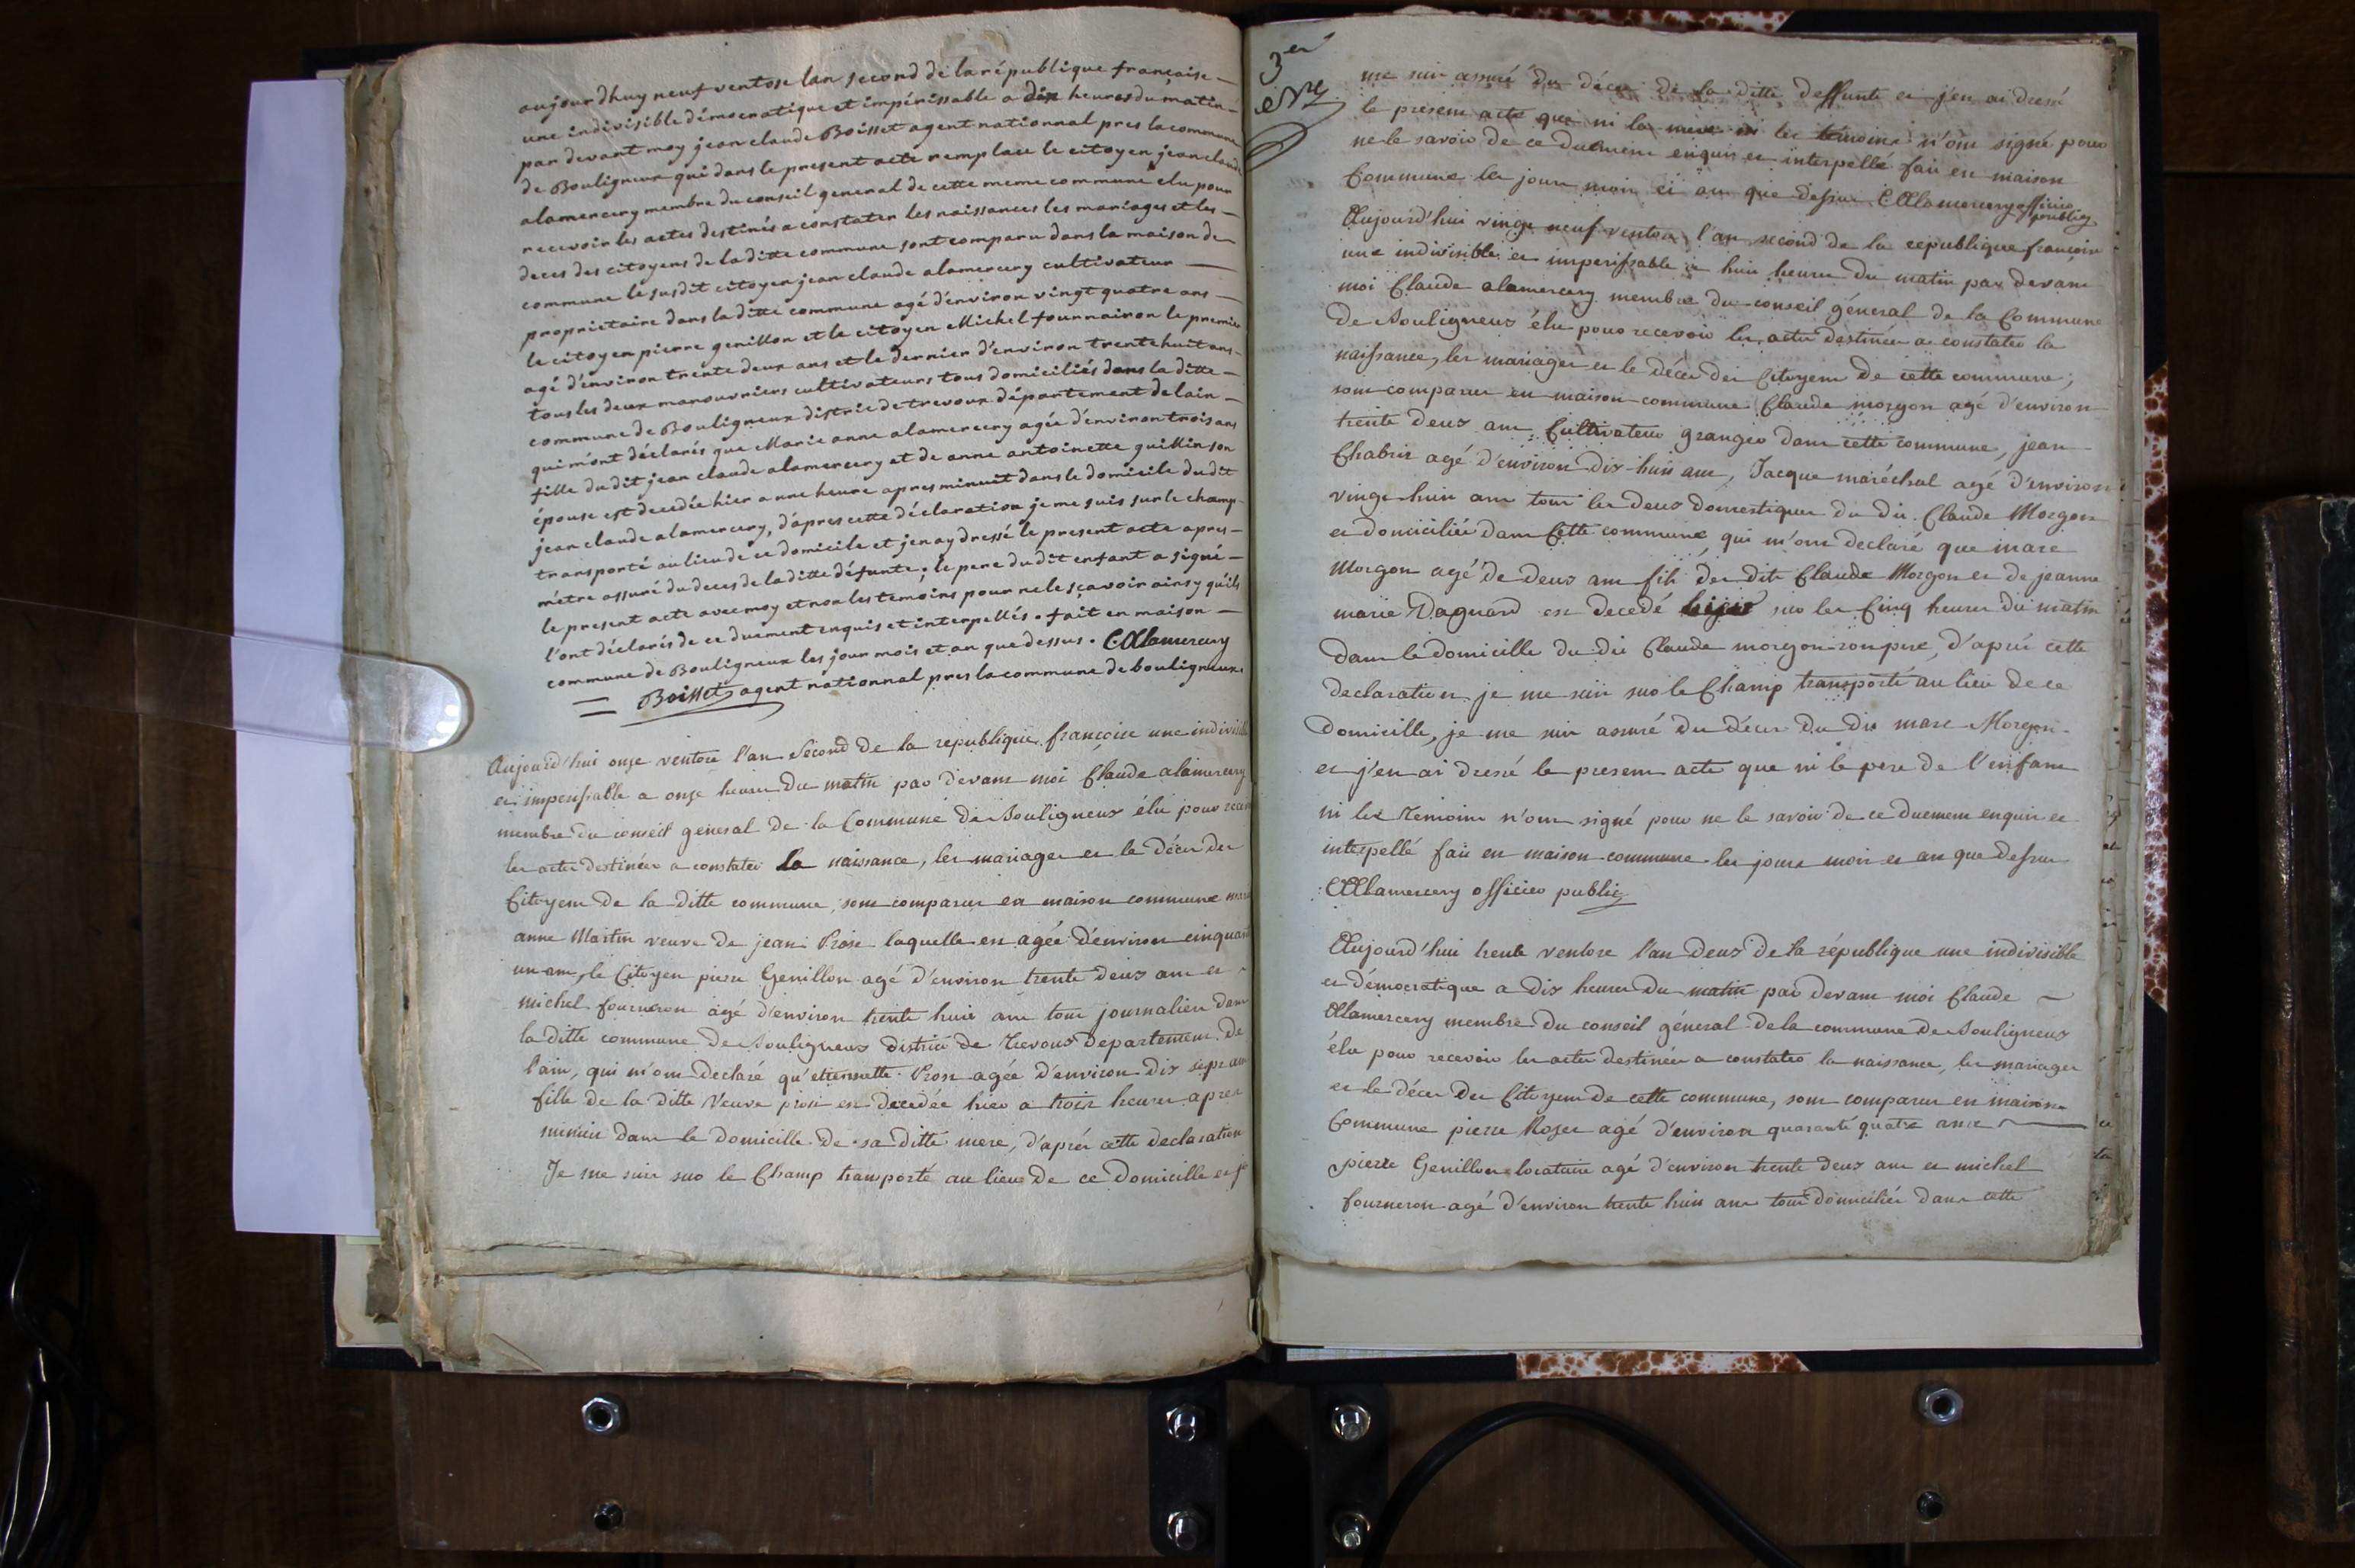 aujourdhuy neuf ventose lan second de la république françaice —
une indivisible démocratique et impérissable a dix heures du matin —
par devant moy jean claude Boisset agent nationnal pres la commune
de Bouligneux qui dans le present acte remplace le citoyen jean claude
alamercery membre du conseil general de cette meme commune élu pour
recevoir les actes destinés a constater les naissances les mariages et les —
deces des citoyens de la ditte commune sont comparu dans la maison de
commune le susdit citoyen jean claude alamercery cultivateur —
proprietaire dans la ditte commune agé d'environ vingt quatre ans —
le citoyen pierre genillon et le citoyen Michel fournairon le premier
agé d'environ trente deux ans et le dernier d'environ trente huit ans —
tous les deux manouvriers cultivateurs tous domiciliés dans la ditte —
commune de Bouligneux distric de trevoux département de lain —
qui m'ont déclarés que Marie anne alamercery agée d'environ trois ans
fille du dit jean claude alamercery et de anne antoinette guillin son
épouse est decedée hier a une heure apres minuit dans le domicile du dit
jean claude alamercery, d'apres cette déclaration je me suis sur le champ
transporté au lieu de ce domicile et jen ay dressé le present acte apres —
m'etre assuré du deces de la ditte défunte ; le pere du dit enfant a signé —
le present acte avec moy et non les temoins pour ne le sçavoir ainsy qu'ils
l'ont déclarés de ce duement enquis et interpellés. fait en maison —
commune de Bouligneux les jour mois et an que dessus. C Alamercery
Boisset agent nationnal pres la commune de bouligneux
Aujourd'hui onze ventose l'an second de la republique françoise une indivisible
et imperissable a onze heures du matin par devant moi Claude alamercery
membre du conseil general de la Commune de Bouligneux élu pour
les actes destinées a constater la naissance, les mariages et le décès des
Citoyens de la ditte commune, sont comparus en maison commune
anne Martin veuve de jean Prost laquelle est agée d'environ cinquante
un ans, le Citoyen pierre Genillon agé d'environ trente deux ans et
michel fourneron agé d'environ trente huit ans tous journalier dans
la ditte commune de Bouligneux district de Trevoux Departement de
l'ain, qui m'ont declaré qu'etiennette Prost agée d'environ dix sept ans
fille de la ditte Veuve prost est decedée hier a trois heures apres
minuit dans le domicille de sa ditte mere, d'aprés cette declaration
Je me suis sur le Champ transporté au lieu de ce domicille et je
3er
me suis assuré du décès de la ditte deffunte et j'en ai dressé
le present acte que ni la mere ni les temoins n'ont signé pour
ne le savoir de ce duement enquis et interpellé fait en maison
Commune les jour mois et an que dessus C Alamercery officier
public
Aujourd'hui vingt neuf ventose l'an second de la republique françoise
une indivisible et imperissable a huit heures du matin par devant
moi Claude alamercery membre du conseil géneral de la Commune
de Bouligneux élu pour recevoir les actes destinées a constater la
naissance, les mariages et le décès des Citoyens de cette commune,
sont comparus en maison commune Claude morgon agé d'environ
trente deux ans Cultivateur granger dans cette commune, jean
Chabrix agé d'environ dix huit ans, Jacque maréchal agé d'environ
vingt huit ans tous les deux domestiques du dit Claude Morgon
et domiciliés dans Cette commune, qui m'ont declaré que marc
Morgon agé de deux ans fils des dits Claude Morgon et de jeanne
marie Daguard est decedé hier sur les Cinq heures du matin
dans le domicille du dit Claude morgon son pere, d'aprés cette
declaration je me suis sur le Champ transporté au lieu de ce
domicille, je me suis assuré du décès du dit marc Morgon
et j'en ai dressé le present acte que ni le pere de l'enfant
ni les temoins n'ont signé pour ne le savoir de ce duement enquis et
interpellé fait en maison commune les jours mois et an que dessus
C Alamercery officier public
Aujourd'hui trente ventose l'an deux de la république une indivisible
et démocratique a dix heures du matin par devant moi Claude —
Alamercery membre du conseil géneral de la commune de Bouligneux
élu pour recevoir les actes destinées a constater la naissance, les mariages
et le décès des Citoyens de cette commune, sont comparus en maison
Commune pierre Roger agé d'environ quarante quatre ans —
pierre Genillon locataire agé d'environ trente deux ans et michel
fourneron agé d'environ trente huit ans tous domiciliés dans cette